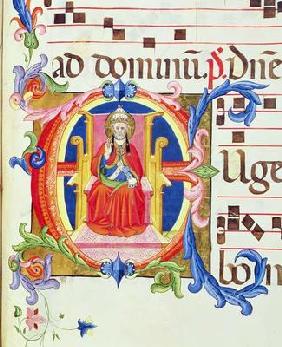 ad dominū. p̄. Dn̄e
E
Uge
bon